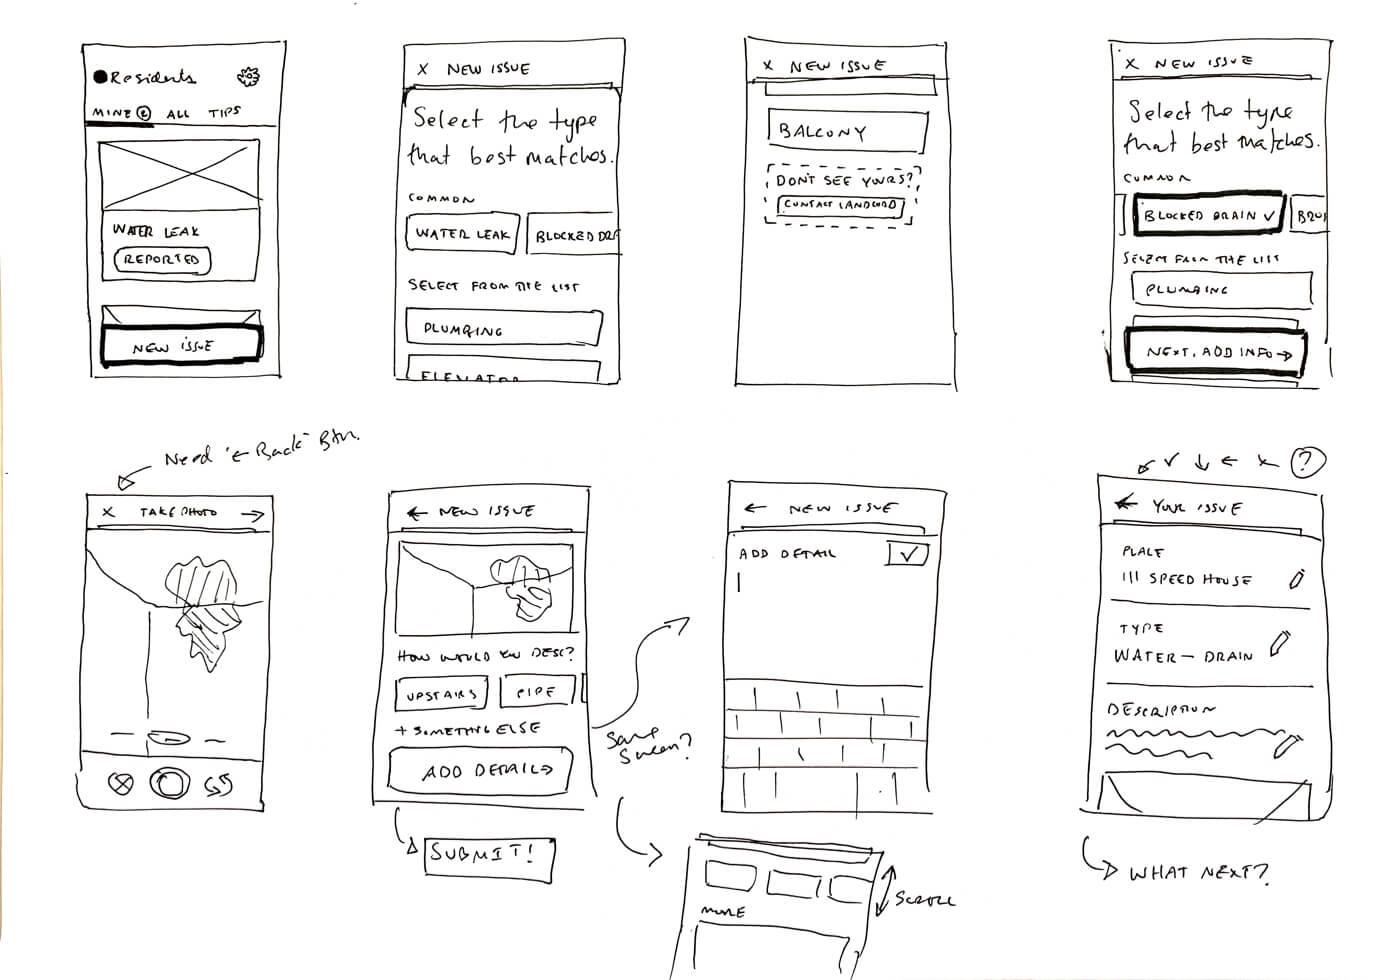 Residents
MINE 2 ALL TIPS
WATER LEAK
REPORTED
NEW ISSUE
X NEW ISSUE
Select the type
that best matches.
COMMON
WATER LEAK
BLOCKED DR
SELECT FROM THE LIST
PLUMBING
ELEVATOR
X NEW ISSUE
BALCONY
DON'T SEE YOURS?
CONTACT LANDLORD
X NEW ISSUE
Select the type
that best matches.
COMMON
BLOCKED DRAIN ✓
SELECT FROM THE LIST
PLUMBING
NEXT, ADD INFO →
Need "← Back" Btn.
X TAKE PHOTO →
← NEW ISSUE
HOW WOULD YOU DESC?
UPSTAIRS
PIPE
+ SOMETHING ELSE
ADD DETAIL →
SUBMIT!
Same
Screen?
← NEW ISSUE
ADD DETAIL ✓
MORE
SCROLL
?
← YOUR ISSUE
PLACE
111 SPEED HOUSE
TYPE
WATER – DRAIN
DESCRIPTION
WHAT NEXT?